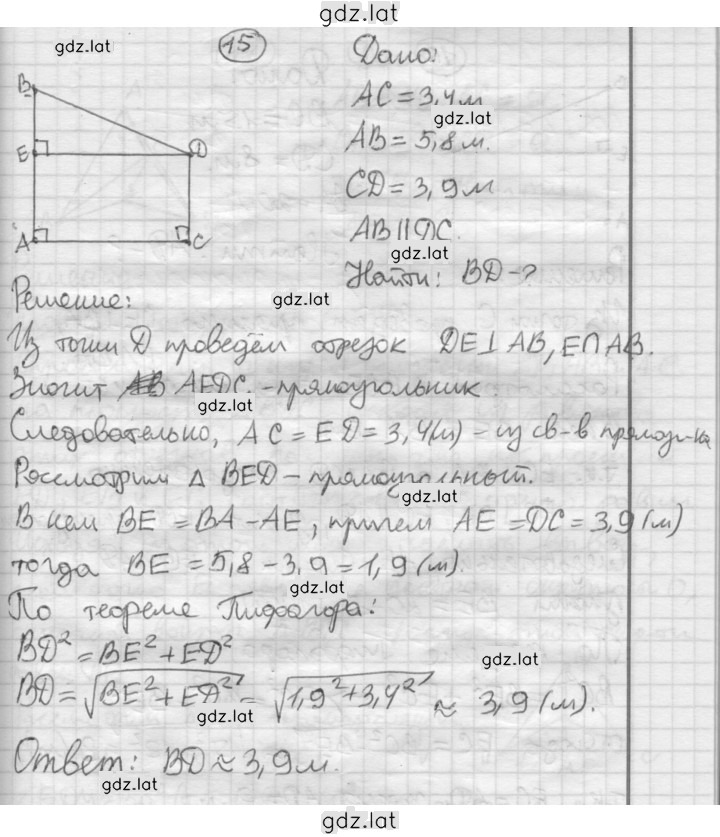 gdz.lat
gdz.lat
15
Дано:
B
AC = 3,4 м
gdz.lat
AB = 5,8 м.
E
D
CD = 3,9 м
AB || DC.
A
C
gdz.lat
Найти: BD - ?
Решение:
gdz.lat
Из точки D проведём отрезок DE ⊥ AB, E ∩ AB.
Значит AEDC - прямоугольник.
gdz.lat
Следовательно, AC = ED = 3,4 (м) - из св-в прямоуг-ка
Рассмотрим △ BED - прямоугольный.
gdz.lat
В нем BE = BA - AE, причем AE = DC = 3,9 (м)
тогда BE = 5,8 - 3,9 = 1,9 (м).
gdz.lat
По теореме Пифагора:
BD² = BE² + ED²
gdz.lat
BD = √BE² + ED² = √1,9² + 3,4² ≈ 3,9 (м).
gdz.lat
Ответ: BD ≈ 3,9 м.
gdz.lat
gdz.lat